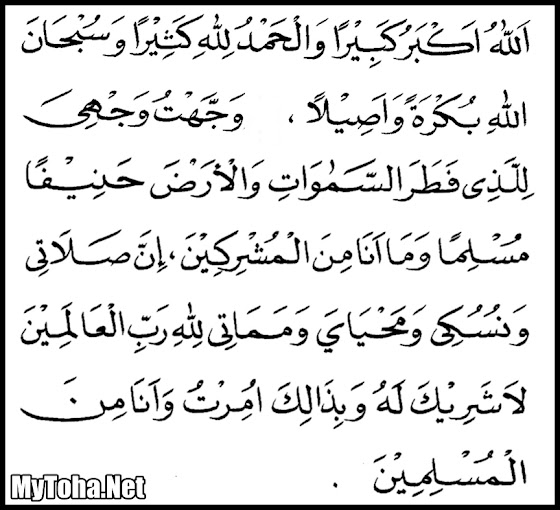 اَللّٰهُ اَكْبَرُ كَبِيْرًا وَالْحَمْدُ لِلّٰهِ كَثِيْرًا وَسُبْحَانَ
اللّٰهِ بُكْرَةً وَاَصِيْلًا ، وَجَّهْتُ وَجْهِيَ
لِلَّذِى فَطَرَ السَّمٰوَاتِ وَالْأَرْضَ حَنِيْفًا
مُسْلِمًا وَمَا اَنَا مِنَ الْمُشْرِكِيْنَ ، اِنَّ صَلَاتِى
وَنُسُكِى وَمَحْيَايَ وَمَمَاتِى لِلّٰهِ رَبِّ الْعَالَمِيْنَ
لَا شَرِيْكَ لَهُ وَبِذَالِكَ اُمِرْتُ وَاَنَا مِنَ
الْمُسْلِمِيْنَ .
MyToha.Net